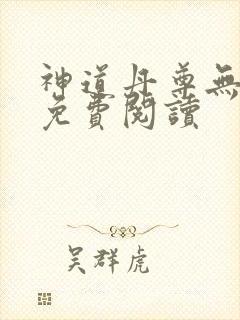 神道丹尊無
免費閱讀
吴群虎